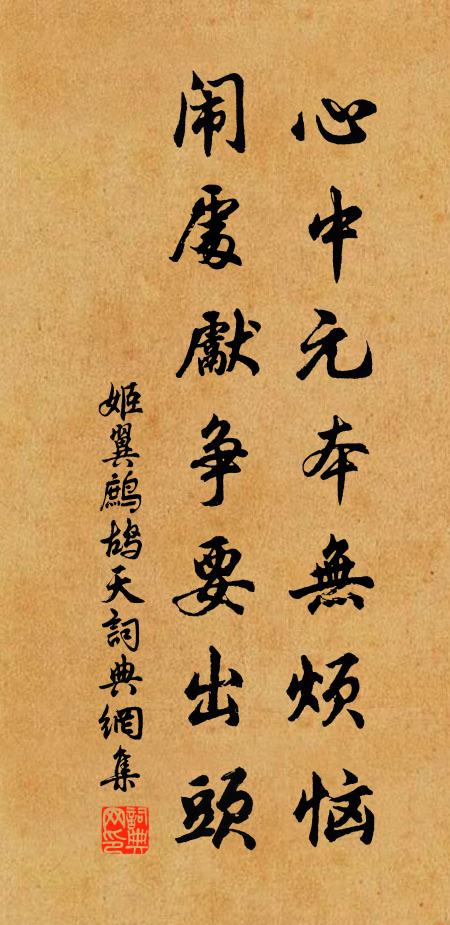 心中元本無烦恼
闹處獻争要出頭
姬翼鷓鴣天詞典網集
詞典网印